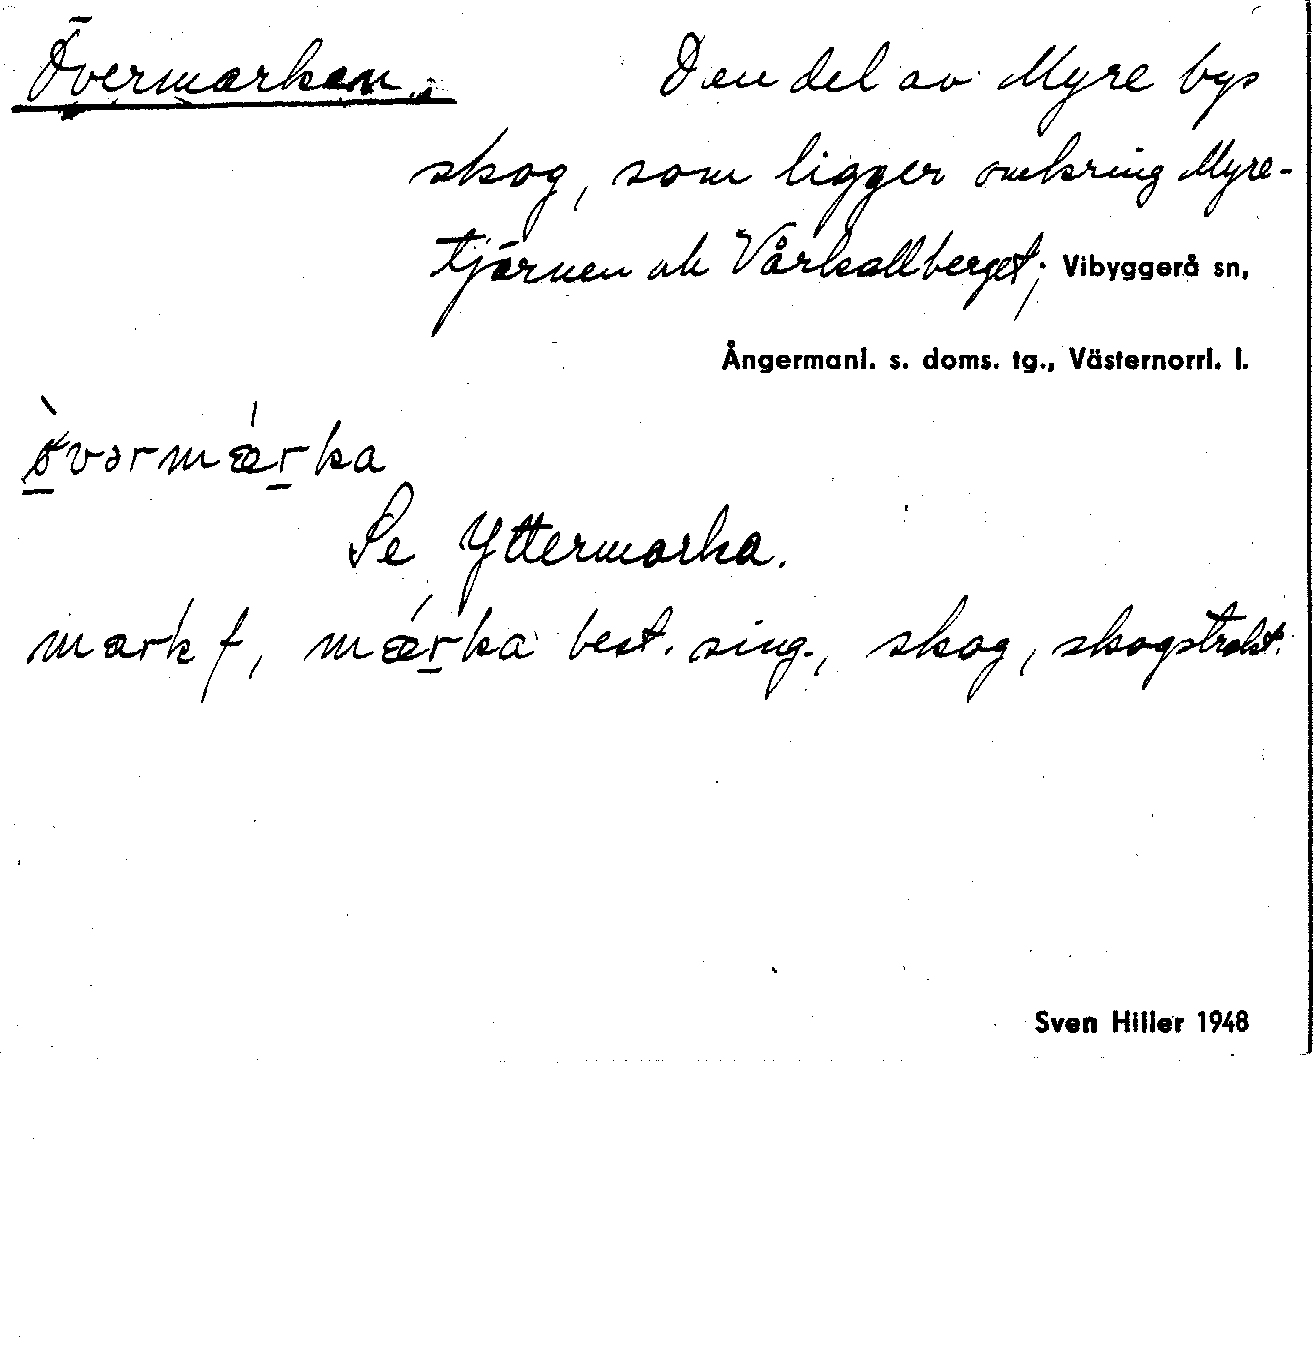 Övermarken.; Den del av Myre bys
skog, som ligger omkring Myre-
tjärnen ok Vårkallberget; Vibyggerå sn,
Ångermanl. s. doms. tg., Västernorrl. l.
ø̀vərmǽrka
Se Yttermarka.
mærk f, mǽrka best. sing., skog, skogstrakt.
Sven Hiller 1948